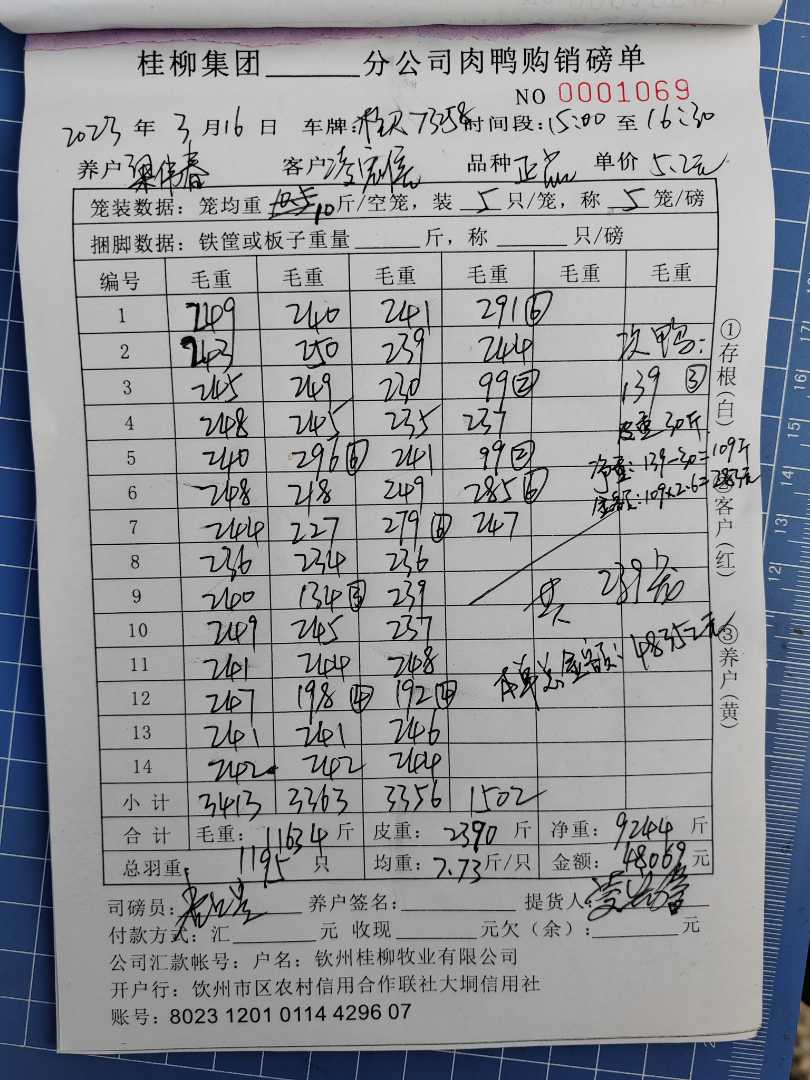 桂柳集团______分公司肉鸭购销磅单
NO 0001069
2023 年 3 月 16 日 车牌: 73258 时间段:15:00 至 16:30
养户 春 客户 凌 信 品种 正品 单价 5.2元
笼装数据：笼均重 10 斤/空笼，装 5 只/笼，称 5 笼/磅
捆脚数据：铁筐或板子重量______斤，称______只/磅
编号 毛重 毛重 毛重 毛重 毛重 毛重
1 249 240 241 291⑥
2 243 250 239 244 次鸭:
3 245 249 230 99② 139 ③
4 248 245 235 237 皮重30斤
5 240 296⑥ 241 99② 净重: 139-30=109斤
6 248 218 249 285⑥ 金额:109×2.6=283元
7 244 227 279⑥ 247
8 236 234 236
9 240 134③ 239 共 239笼
10 249 245 237
11 241 244 248 本单总金额: 48352元
12 247 198④ 192④
13 241 241 246
14 242 242 244
小 计 3413 3363 3356 1502
合 计 毛重: 11634 斤 皮重: 2390 斤 净重: 9244 斤
总羽重 1195 只 均重: 7.73斤/只 金额: 48069 元
司磅员: 养户签名:__________ 提货人
付款方式: 汇________元 收现________元欠（余）:________元
公司汇款帐号: 户名: 钦州桂柳牧业有限公司
开户行: 饮州市区农村信用合作联社大垌信用社
账号: 8023 1201 0114 4296 07
①存根(白) ②客户(红) ③养户(黄)